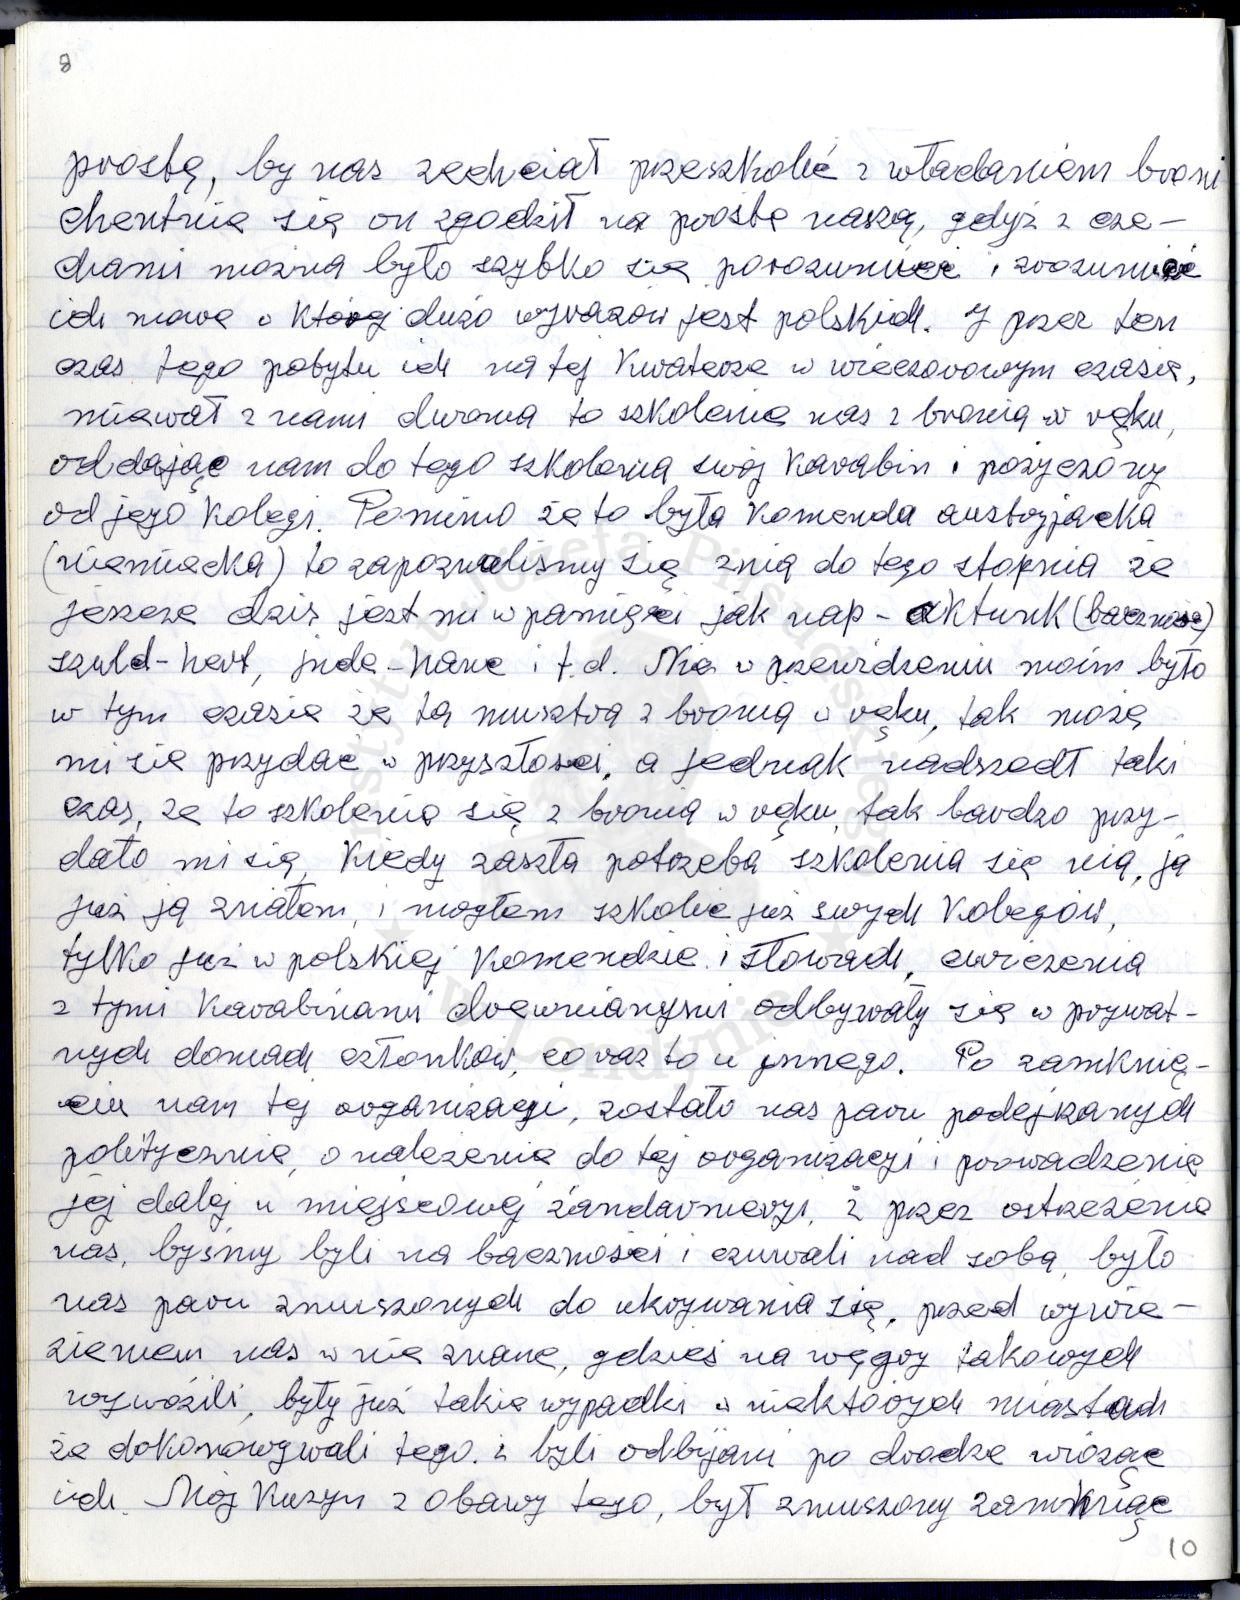 8
prośbę, by nas zechciał przeszkolić z władaniem broni
chentnie się on zgodził na prośbę naszą, gdyż z cze-
chami można było szybko się porozumieć i zrozumieć
ich mowe w której dużo wyrazów jest polskich. I przez ten
czas tego pobytu ich na tej kwaterze w wieczorowym czasie,
miewał z nami dwoma to szkolenie nas z bronią w ręku,
oddając nam do tego szkolenia swój karabin i pożyczony
od jego kolegi. Pomimo że to była komenda austryjacka
(niemiecka) to zapoznaliśmy się z nią do tego stopnia że
jeszcze dziś jest mi w pamięci jak nap - aktunk (baczność)
szuld-hert, jnde-hane i t.d. Nie w przewidzeniu moim było
w tym czasie że ta musztra z bronią w ręku, tak może
mi sie przydać w przyszłości, a jednak nadszedł taki
czas, że to szkolenie się z bronią w ręku, tak bardzo przy-
dało mi się, kiedy zaszła potrzeba szkolenia się nią, ja
już ją znałem, i mogłem szkolić już swych kolegów,
tylko już w polskiej komendzie i słowach, ćwiczenia
z tymi karabinami drewnianymi odbywały się w prywat-
nych domach członków, coraz to u jnnego. Po zamknię-
ciu nam tej organizacji, zostało nas paru podejżanych
politycznie, o należenie do tej organizacyi i prowadzenie
jej dalej u miejscowej żandarmeryi, i przez ostrzeżenie
nas, byśmy byli na baczności i czuwali nad sobą, było
nas paru zmuszonych do ukrywania się, przed wywie-
zieniem nas w nie znane, gdzieś na węgry takowych
wywozili, były już takie wypadki w niektórych miastach
że dokonowywali tego. i byli odbijani po drodze wioząc
ich. Mój kuzyn z obawy tego, był zmuszony zamknąć
10
Instytut Józefa Piłsudskiego
w Londynie